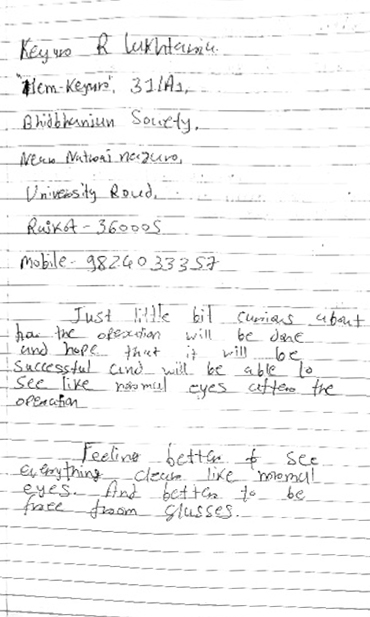 Keyur R Lukhtaria
"Hem-Keyur', 31/A1,
Bhidbhanjan Society,
Near Nutan nagar,
University Road,
Rajkot - 360005
Mobile - 9824033357
Just little bit curious about
how the operation will be done
and hope that it will be
successful and will be able to
see like normal eyes after the
operation
Feeling better & see
everything clear like normal
eyes. And better to be
free from glasses.